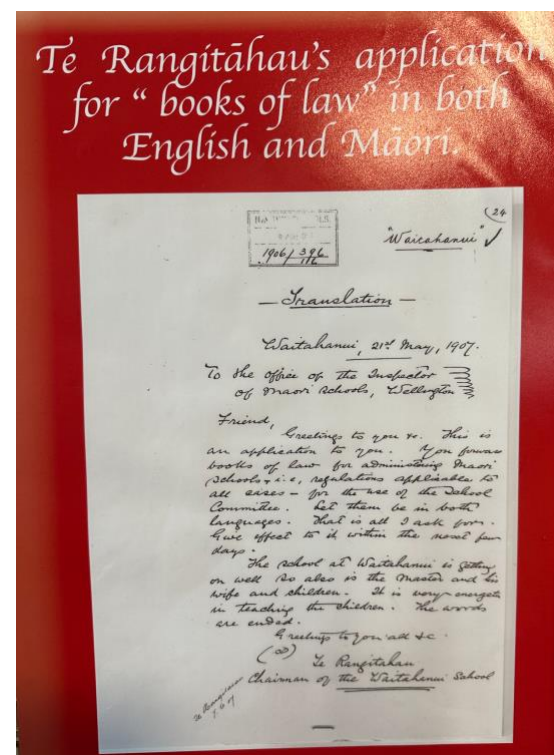 Te Rangitāhau's application
for “ books of law” in both
English and Māori.
24
"Waitahanui" ✓
1906/396
116
— Translation —
Waitahanui, 21st May, 1907.
To the Office of the Inspector
of Maori Schools, Wellington
Friend,
Greetings to you &c. This is
an application to you. You forward
books of law for administering Maori
Schools, i.e, regulations applicable to
all cases – for the use of the School
Committee. Let them be in both
languages. That is all I ask for.
Give effect to it within the next few
days.
The School at Waitahanui is getting
on well so also is the Master and his
wife and children. It is very energetic
in teaching the children. The words
are ended.
Greetings to you all &c.
Te Rangitahau
Chairman of the Waitahanui School